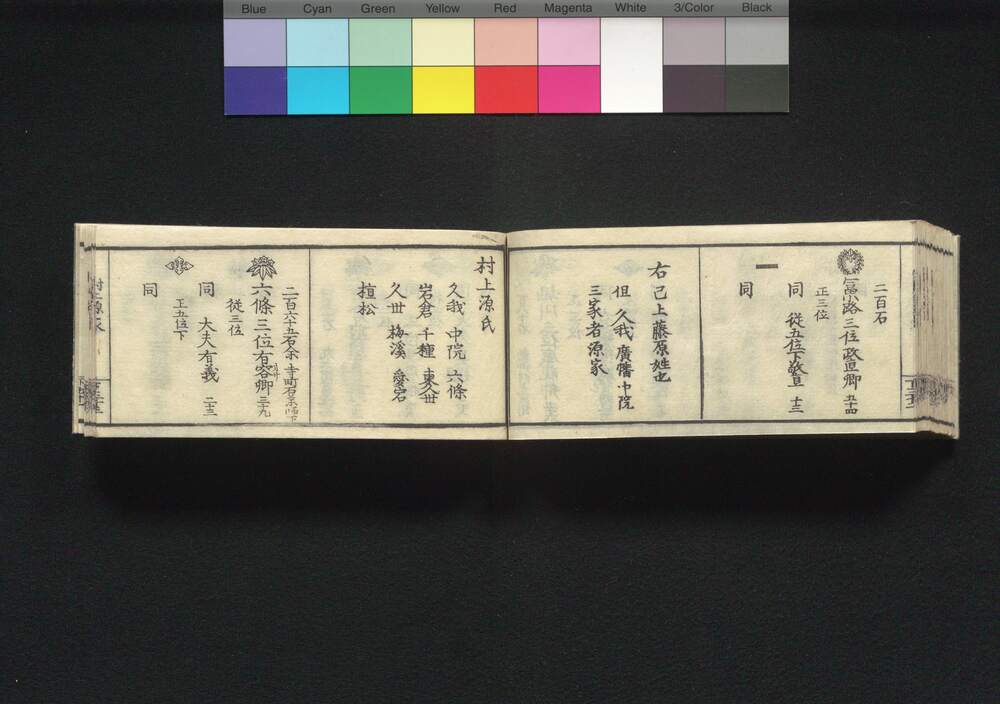 Blue Cyan Green Yellow Red Magenta White 3/Color Black
二百石
冨小路三位政直卿 五十四
正三位
同 従五位下敬直 十三
同
右已上藤原姓也
但 久我 廣幡 中院
三家者源家
村上源氏
久我 中院 六條
岩倉 千種 東久世
久世 梅溪 愛宕
植松
二百六十五石余 寺町石薬師下
六條三位有容卿 三十九
従三位
同 大夫有義 二十三
正五位下
同
村上源氏